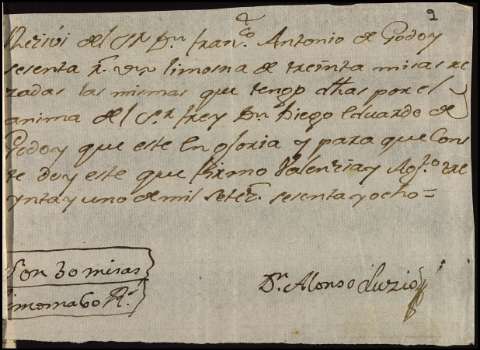 9
Rezivi del Sr Dn Franco Antonio de Godoy
sesenta rs von limosna de treinta misas re
zadas las mismas que tengo dhas por el
anima del Sr frey Dn Diego Eduardo de
Godoy que este en gloria y para que cons
te doy este que firmo Valenzia y Agto tre
ynta y uno de mil setes sesenta y ocho =
Son 30 misas
limosna 60 Rs
Dn Alonso Luzio